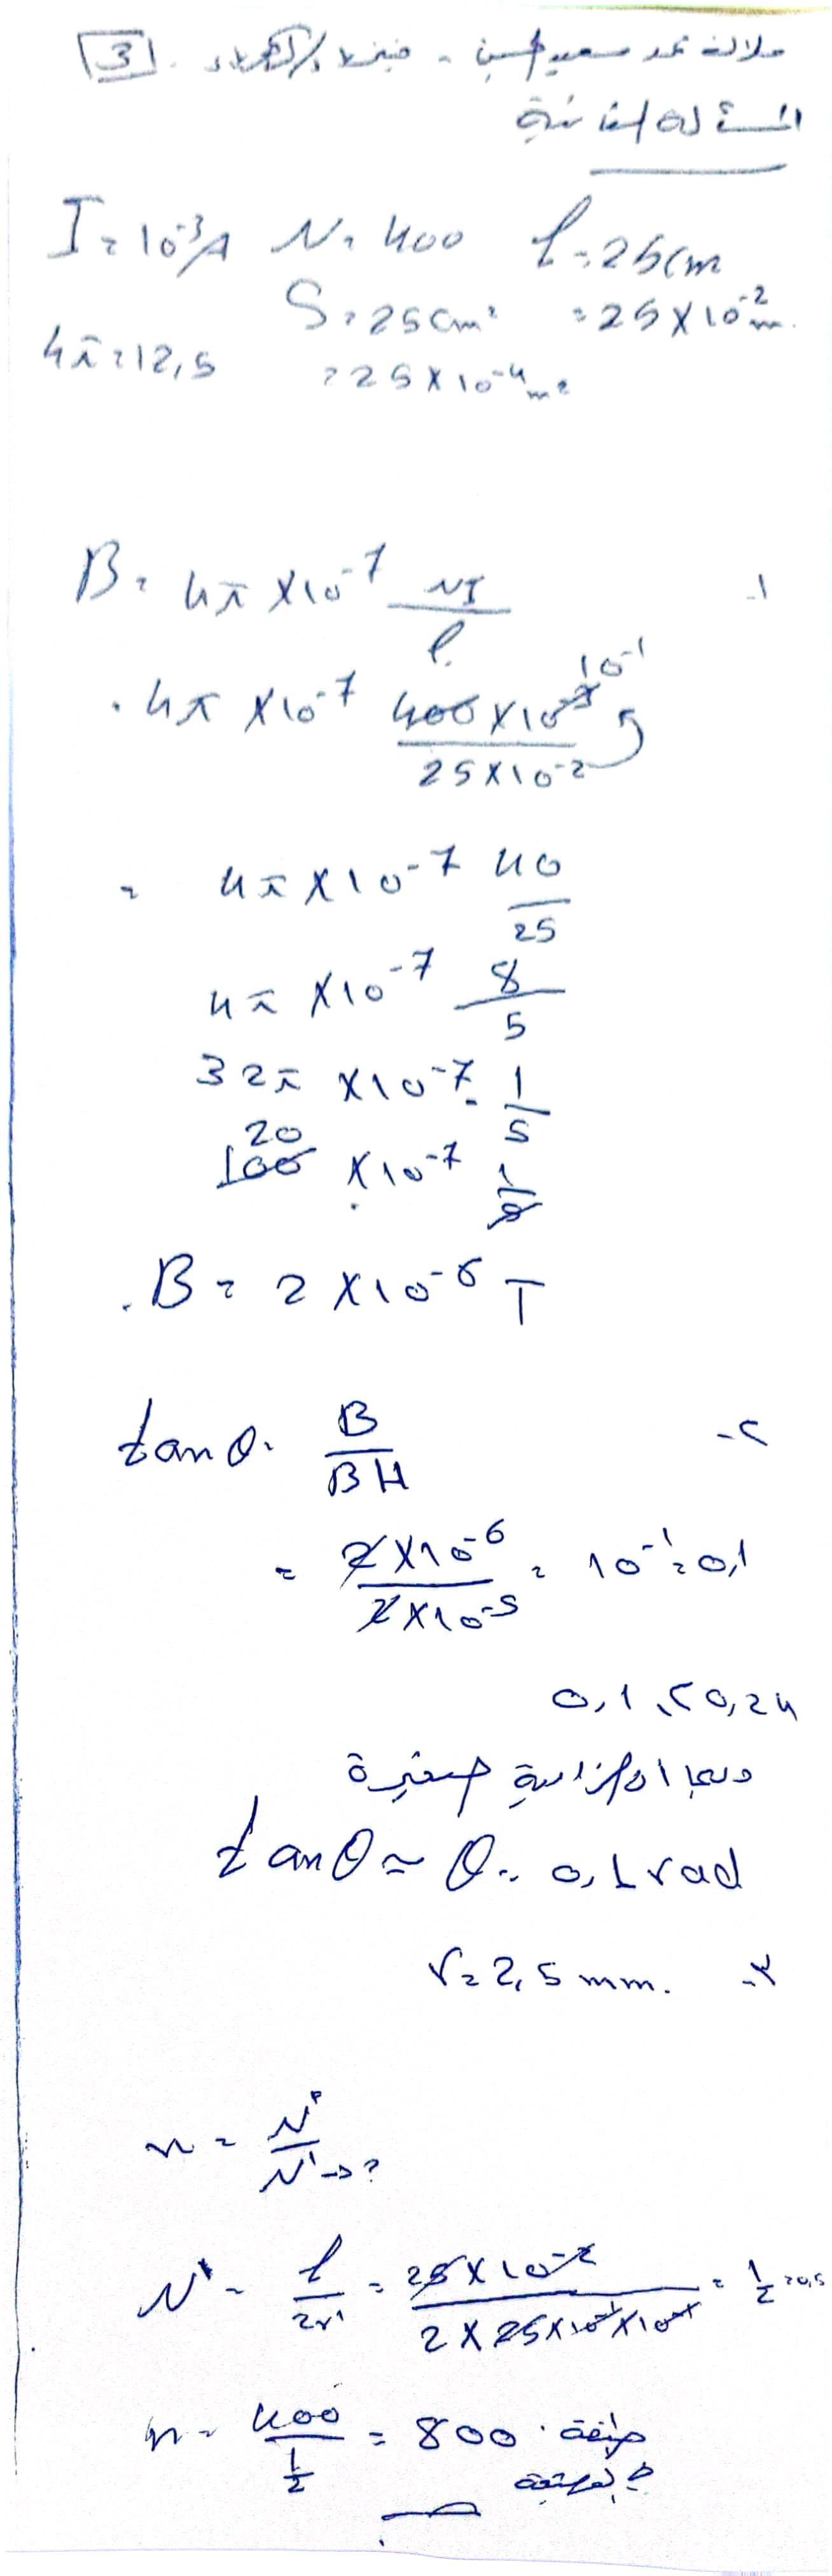 محمد سعيد - فيزياء / كهرباء . 3
المسألة الثانية
I = 10^-3 A N = 400 l = 25 cm
S = 25 cm² = 25 × 10^-2 m.
4π = 12,5 = 25 × 10^-4 m²
B = 4π × 10^-7 NI / l. -1
= 4π × 10^-7 400 × 10^-3 / 25 × 10^-2 10^-1
= 4π × 10^-7 40 / 25
4π × 10^-7 8 / 5
32π × 10^-7 . 1 / 5
20
100 × 10^-7 1 / 5
. B = 2 × 10^-6 T
tan θ = B / BH -٢
= 2 × 10^-6 / 2 × 10^-5 = 10^-1 = 0,1
0,1 < 0,24
وبما أن الزاوية صغيرة
tan θ ≈ θ = 0,1 rad
r = 2,5 mm. -٣
n = N / N' → ?
N' = l / 2r' = 25 × 10^-2 / 2 × 25 × 10^-1 × 10^-1 = 1/2 = 0,5
n = 400 / 1/2 = 800 . طبقة